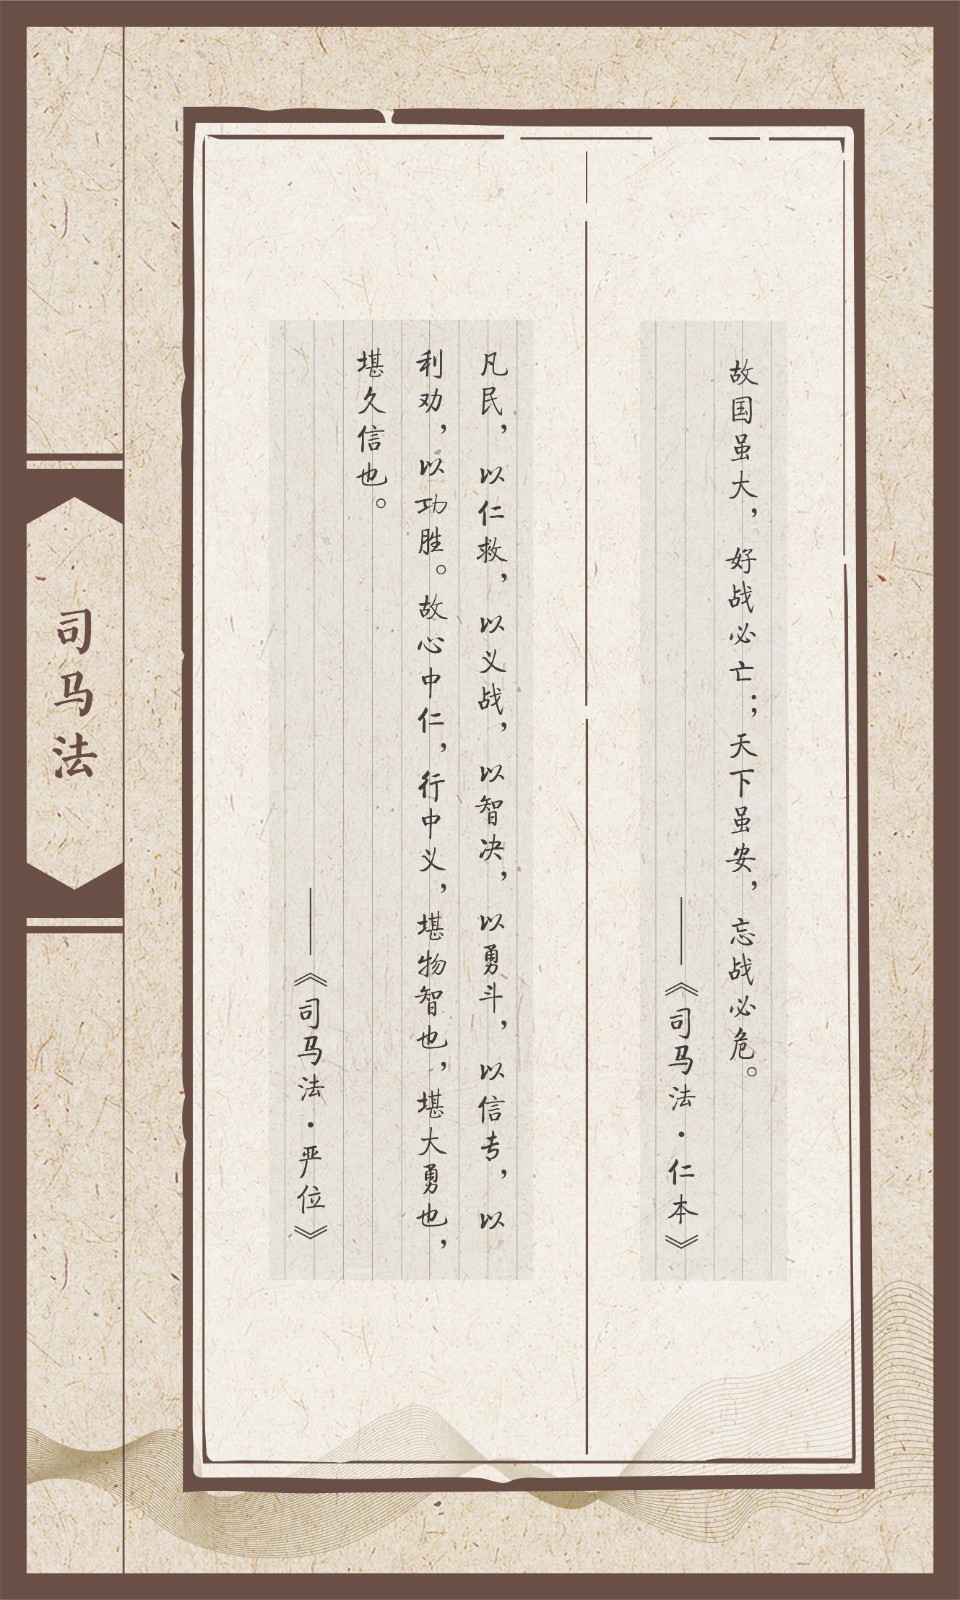 故国虽大，好战必亡；天下虽安，忘战必危。
——《司马法·仁本》
凡民，以仁救，以义战，以智决，以勇斗，以信专，以
利劝，以功胜。故心中仁，行中义，堪物智也，堪大勇也，
堪久信也。
——《司马法·严位》
司马法